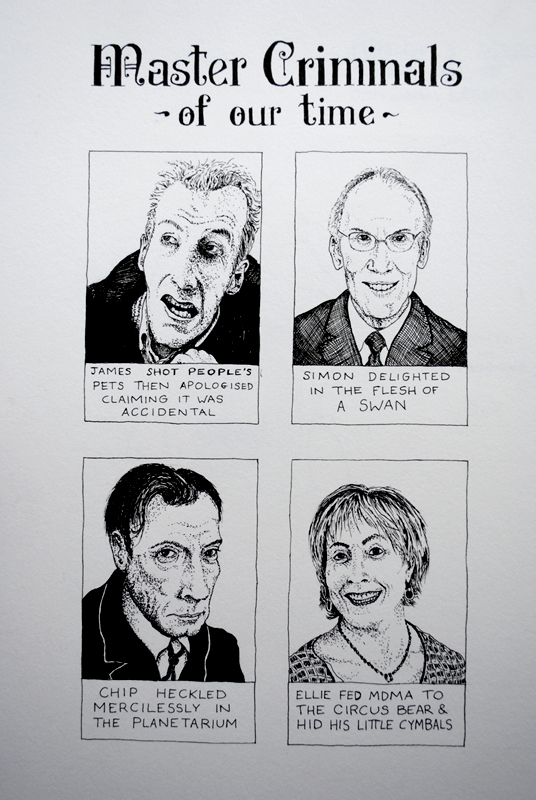 Master Criminals
~ of our time ~
JAMES SHOT PEOPLE'S
PETS THEN APOLOGISED
CLAIMING IT WAS
ACCIDENTAL
SIMON DELIGHTED
IN THE FLESH OF
A SWAN
CHIP HECKLED
MERCILESSLY IN
THE PLANETARIUM
ELLIE FED MDMA TO
THE CIRCUS BEAR &
HID HIS LITTLE CYMBALS